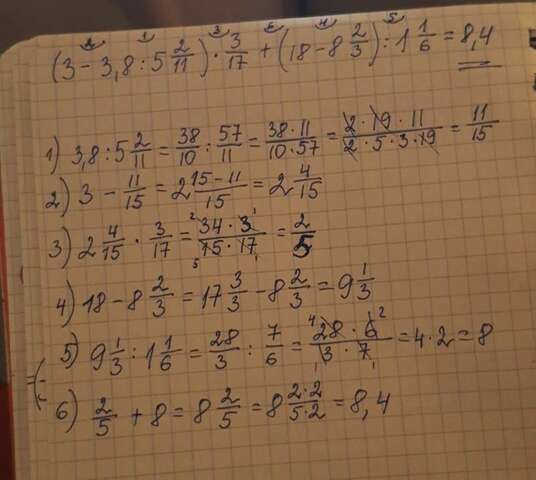 (3 - 3,8 : 5 2/11) · 3/17 + (18 - 8 2/3) : 1 1/6 = 8,4
1) 3,8 : 5 2/11 = 38/10 : 57/11 = 38·11/10·57 = 2·19·11/2·5·3·19 = 11/15
2) 3 - 11/15 = 2 15-11/15 = 2 4/15
3) 2 4/15 · 3/17 = 34·3/15·17 = 2/5
4) 18 - 8 2/3 = 17 3/3 - 8 2/3 = 9 1/3
5) 9 1/3 : 1 1/6 = 28/3 : 7/6 = 28·6/3·7 = 4·2 = 8
6) 2/5 + 8 = 8 2/5 = 8 2·2/5·2 = 8,4